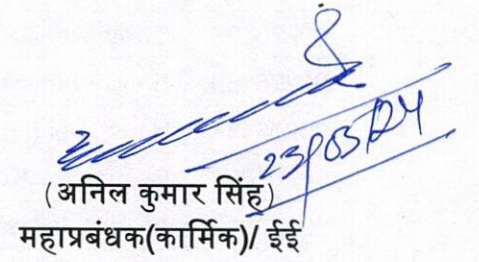 23/05/24
(अनिल कुमार सिंह)
महाप्रबंधक(कार्मिक)/ ईई